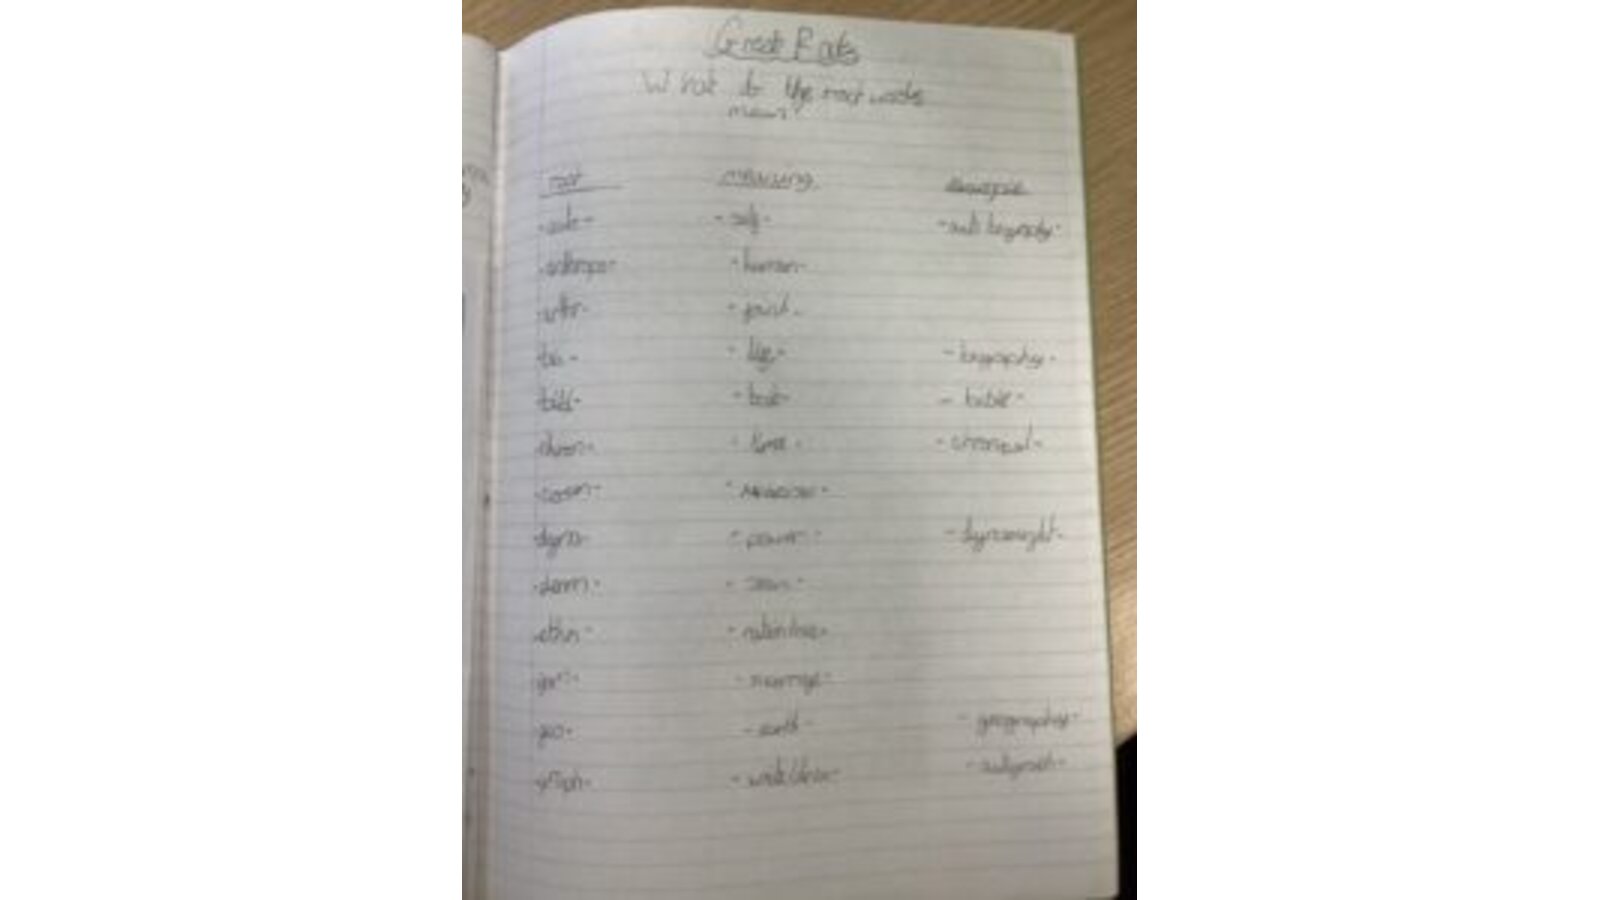 Greek Roots
What do the root words
mean
root meaning example
-auto- -self- -autobiography-
-anthropo- -human-
-arthr- -joint-
-bio- -life- -biography-
-bibl- -book- -bible-
-chron- -time-
-cosm-
-dyna- -power-
-derm- -skin-
-ethn-
-gam- -marriage-
-geo- -earth- -geography-
-graph- -write/draw- -autograph-